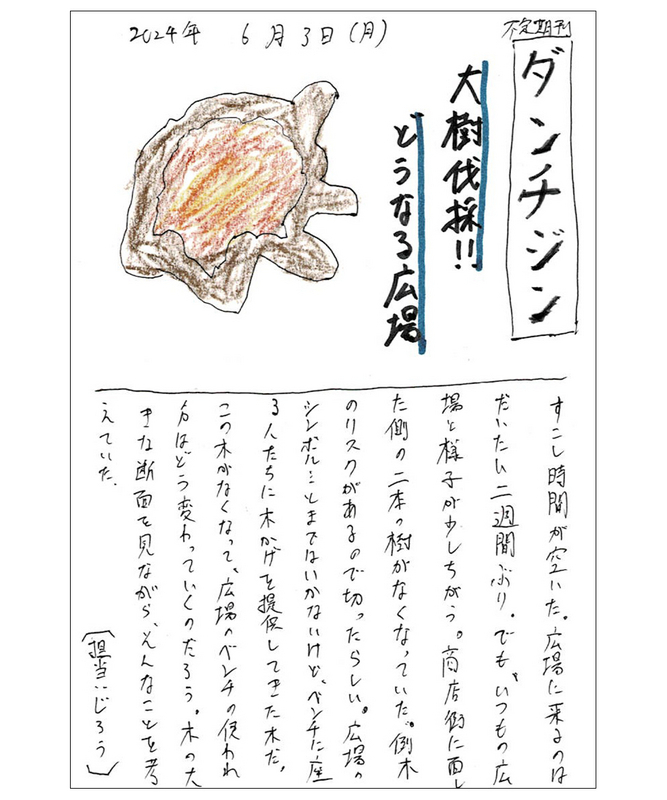 2024年 6月3日(月)
不定期刊
ダンチジン
大樹伐採!!
どうなる広場
すこし時間が空いた。広場に来るのは
だいたい二週間ぶり。でも、いつもの広
場と様子が少しちがう。商店街に面し
た側の二本の樹がなくなっていた。倒木
のリスクがあるので切ったらしい。広場の
シンボル…とまではいかないけど、ベンチに座
る人たちに木かげを提供してきた木だ。
この木がなくなって、広場のベンチの使われ
方はどう変わっていくのだろう。木の大
きな断面を見ながら、そんなことを考
えていた。
〔担当:じろう〕